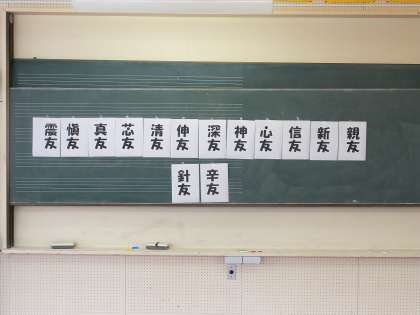 震友 愼友 真友 芯友 清友 伸友 深友 神友 心友 信友 新友 親友
針友 辛友